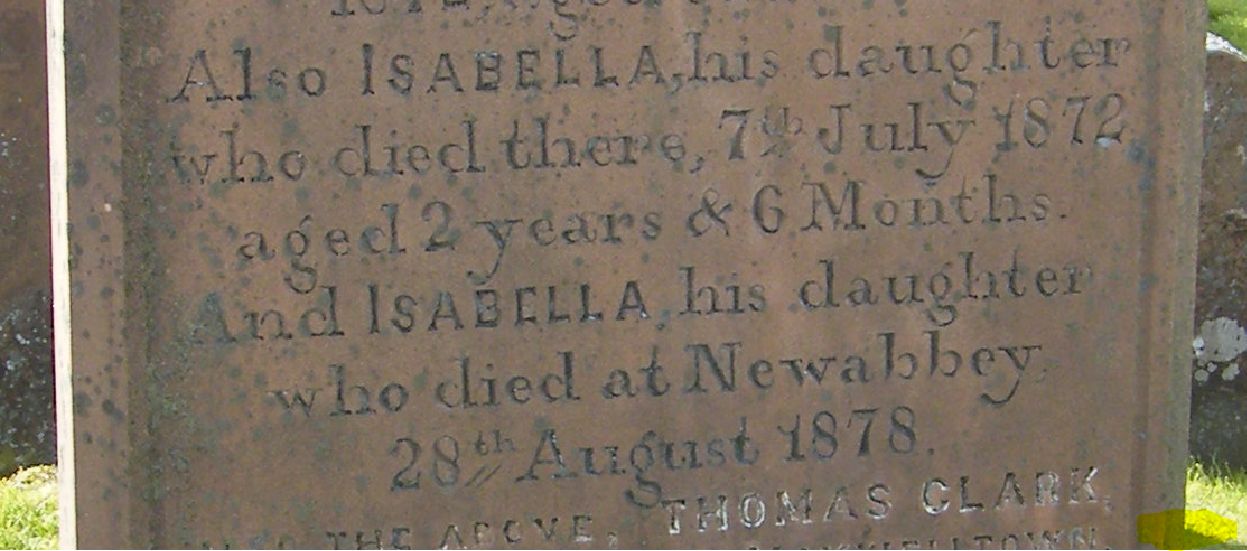 Also ISABELLA, his daughter
who died there, 7th July 1872
aged 2 years & 6 Months.
And ISABELLA, his daughter
who died at Newabbey
28th August 1878.
THE ABOVE, THOMAS CLARK,
MAXWELLTOWN